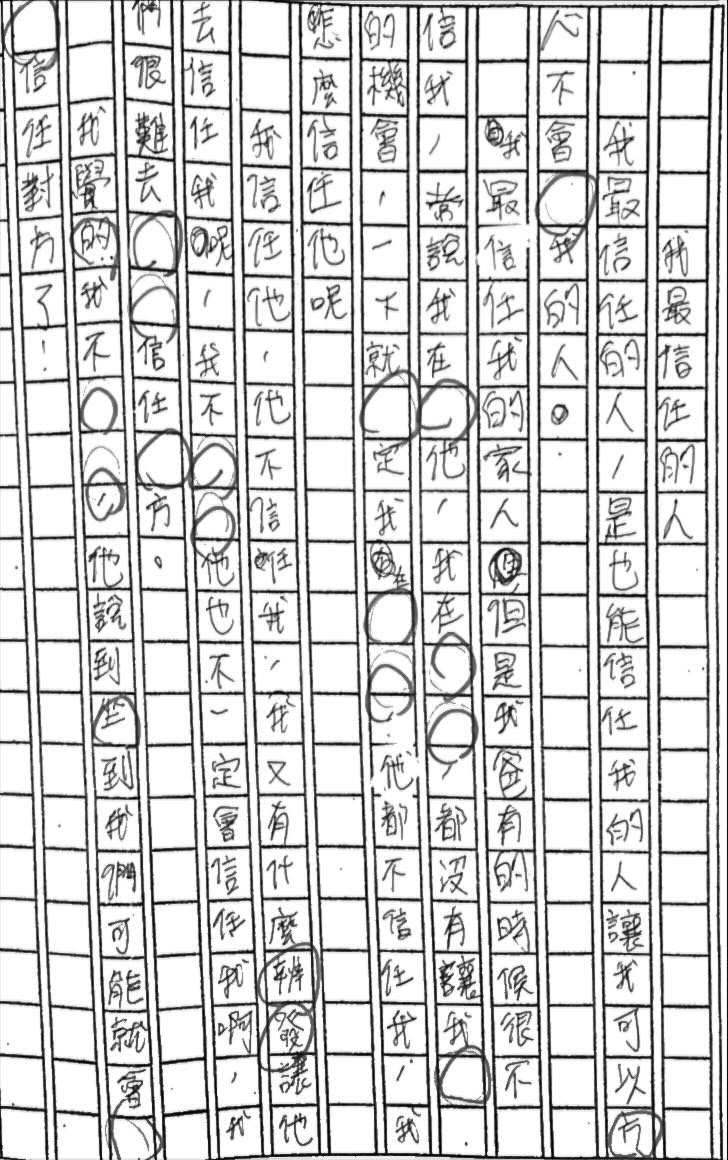 我最信任的人
我最信任的人,是也能信任我的人讓我可以方
心不會我的人。
我最信任我的家人但是我爸有的時候很不
信我,常說我在他,我在,都沒有讓我
的機會,一下就定我在他都不信任我,我
怎麼信任他呢
我信任他,他不信任我,我又有什麼辨發讓他
去信任我呢,我不他也不一定會信任我啊,我
們很難去信任方。
我覺的我不,他說到坐到我們可能就會
信任對方了!